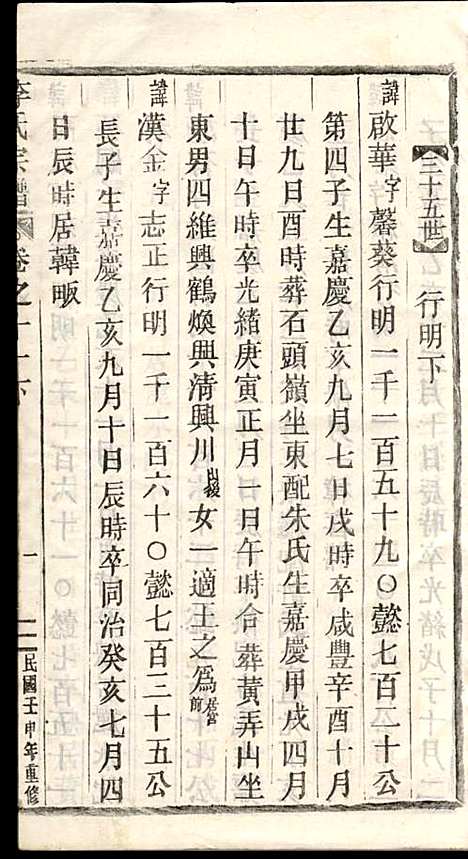 【三十五世】　行明下
諱啟華字馨葵行明一千一百五十九〇懿七百二十公
第四子生嘉慶乙亥九月七日戌時卒咸豐辛酉十月
廿九日酉時葬石頭嶺坐東配朱氏生嘉慶甲戌四月
十日午時卒光緒庚寅正月一日午時合葬黃弄山坐
東男四維興鶴煥興清興川出後女一適王之為居官前
諱漢金字志正行明一千一百六十〇懿七百三十五公
長子生嘉慶乙亥九月十日辰時卒同治癸亥七月四
日辰時居韓畈
李氏宗譜　卷之十一下　一　民國壬申年重修